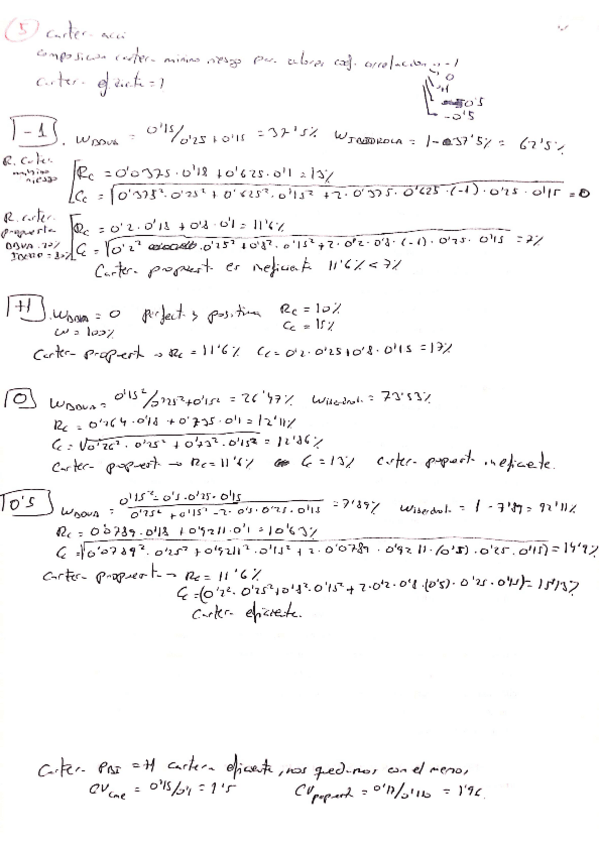 5 Cartera acci
Composición cartera mínimo riesgo para valores coef. correlación: -1
0
+1
0'5
-0'5
Cartera eficiente = ?
-1. WBBVA = 0'15/0'25+0'15 = 37'5% WIBERDROLA = 1-37'5% = 62'5%
R. Carter mínimo riesgo
Rc = 0'0375·0'18 + 0'625·0'1 = 13%
Cc = √0'375²·0'25² + 0'625²·0'15² + 2·0'375·0'625·(-1)·0'25·0'15 = 0
R. carter propuesta
Rc = 0'2·0'18 + 0'8·0'1 = 11'6%
C = √0'2²·0'25² + 0'8²·0'15² + 2·0'2·0'8·(-1)·0'25·0'15 = 7%
Carter propuest es ineficiente 11'6% < 7%
+1. WBBVA = 0 perfect y positiva Rc = 10%
W = 100% Cc = 15%
Carter propuest → Rc = 11'6% Cc = 0'2·0'25+0'8·0'15 = 17%
0 WBBVA = 0'15²/0'25²+0'15² = 26'47% WIberdrol = 73'53%
Rc = 0'264·0'18 + 0'735·0'1 = 12'11%
Cc = √0'26²·0'25² + 0'73²·0'15² = 12'86%
Carter propuest → Rc = 11'6% C = 13% Carter propuest ineficiente.
0'5 WBBVA = 0'15²-0'5·0'25·0'15 / 0'25²+0'15²-2·0'5·0'25·0'15 = 7'89% WIberdrol = 1-7'89 = 92'11%
Rc = 0'0789·0'18 + 0'9211·0'1 = 10'63%
C = √0'0789²·0'25² + 0'9211²·0'15² + 2·0'0789·0'9211·(0'5)·0'25·0'15) = 14'9%
Carter propuest → Rc = 11'6%
Cc = (0'2²·0'25²+0'8²·0'15² + 2·0'2·0'8·(0'5)·0'25·0'15) = 15'13%
Carter eficiente.
Carter = +1 cartera eficiente, nos quedamos con el menor,
CV = 0'15/0'1 = 1'5 CVpropuest = = 1'46